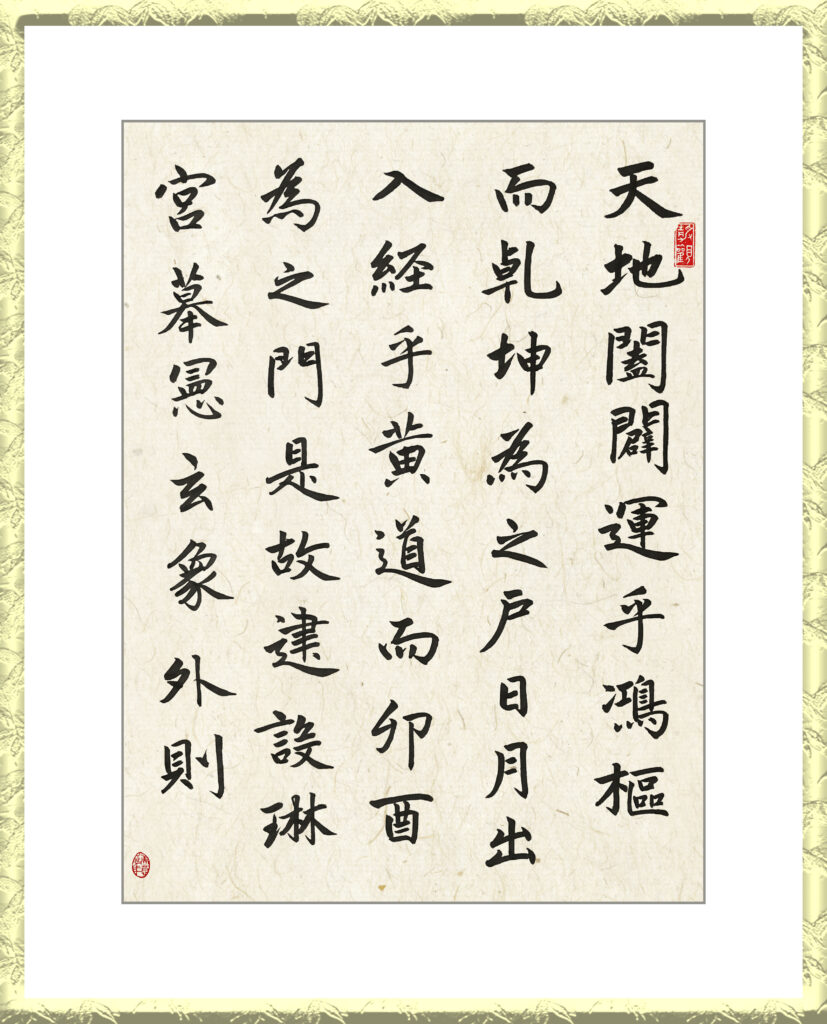 天地闔闢運乎鴻樞
而乹坤為之户日月出
入経乎黄道而卯酉
為之門是故建設琳
宮摹憲玄象外則